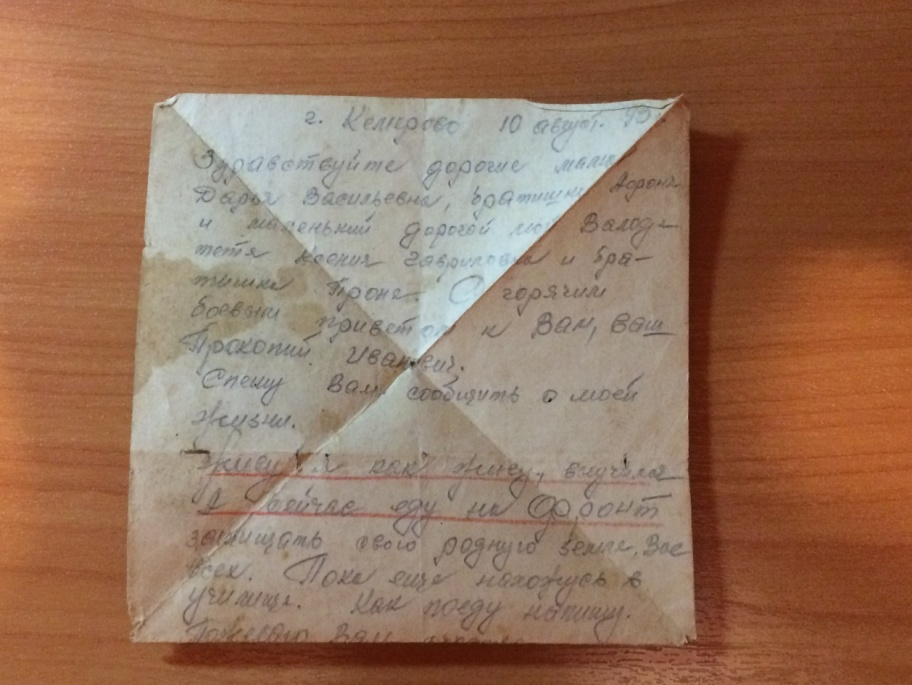 г. Кемерово 10 август.
Здравствуйте дорогие мама
Дарья Васильевна, братишки Афоня
и маленький дорогой мой Володя
тетя Ксения Гавриловна и бра-
тишка Проня. С горячим
боевым приветом к Вам, ваш
Прокопий Иванович.
Спешу Вам сообщить о моей
жизни.
Живу я как живу, выучился
а сейчас еду на Фронт
защищать свою родную землю, Вас
всех. Пока еще нахожусь в
училище. Как поеду напишу.
Вам